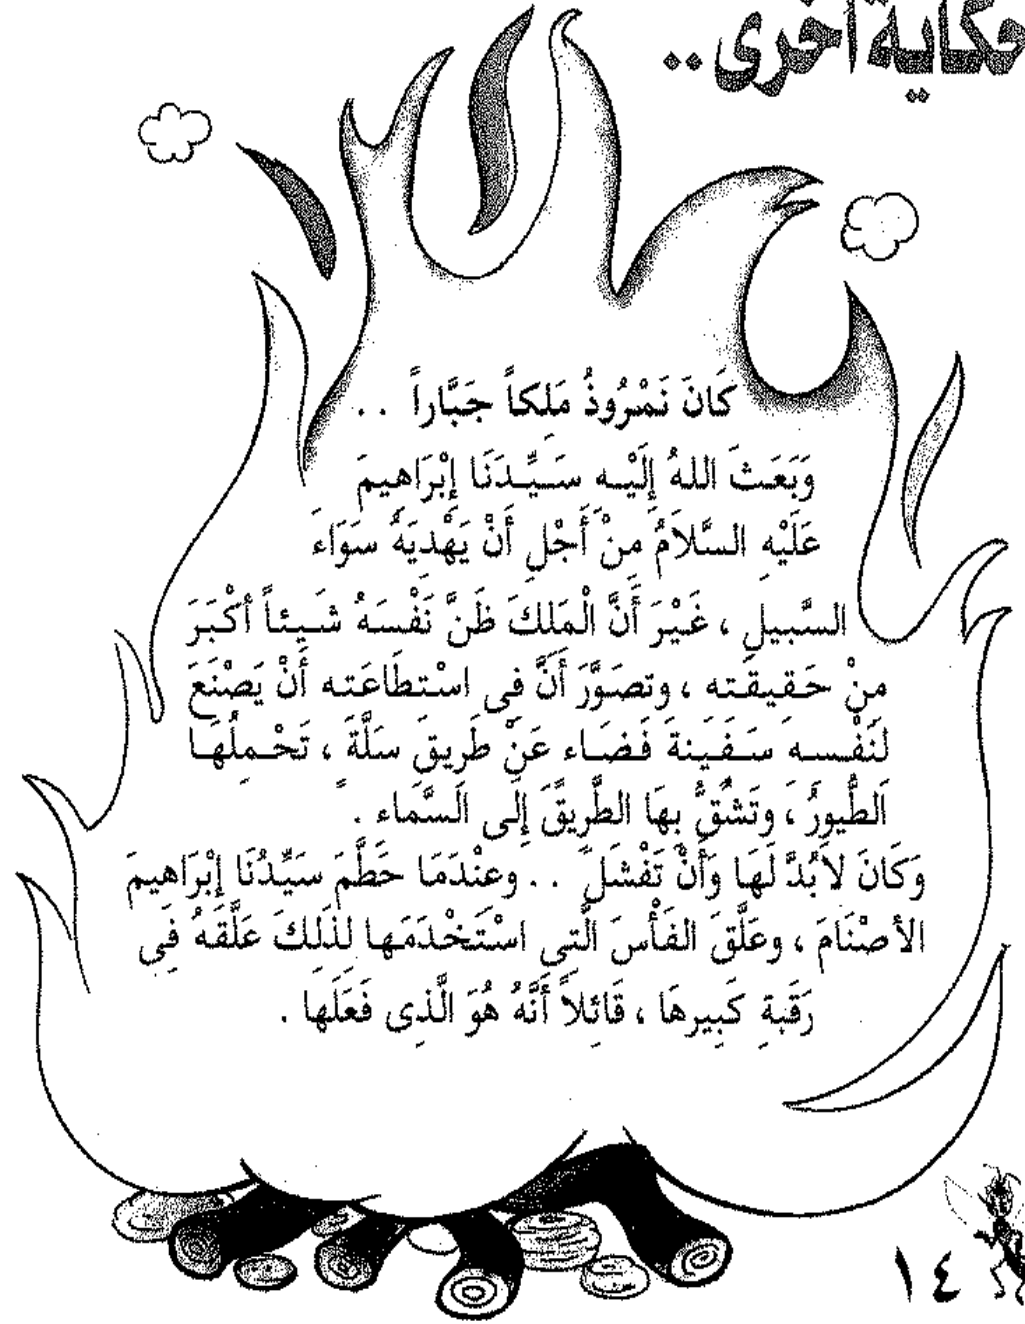 حكاية أخرى..
كَانَ نَمْرُوذُ مَلِكاً جَبَّاراً ..
وَبَعَثَ اللهُ إِلَيْهِ سَيِّدَنَا إِبْرَاهِيمَ
عَلَيْهِ السَّلاَمُ مِنْ أَجْلِ أَنْ يَهْدِيَهُ سَوَاءَ
السَّبِيلِ ، غَيْرَ أَنَّ الْمَلِكَ ظَنَّ نَفْسَهُ شَيْئاً أَكْبَرَ
مِنْ حَقِيقَتِه ، وتَصَوَّرَ أَنَّ فِى اسْتطَاعَتِه أَنْ يَصْنَعَ
لنَفْسِه سَفِينةَ فَضَاء عَنْ طَرِيقِ سَلَّةَ ، تَحْمِلُهَا
الطُّيورُ ، وتَشُقُّ بِهَا الطَّرِيقَ إِلَى السَّمَاء .
وَكَانَ لاَبُدَّ لَهَا وَأَنْ تَفْشَلَ .. وعِنْدَمَا حَطَّمَ سَيِّدُنَا إِبْرَاهِيمَ
الأصْنَامَ ، وعَلَّقَ الفَأْسَ الَّتِى اسْتَخْدَمَها لذَلِكَ عَلَّقَهُ فِى
رَقَبةِ كَبِيرِهَا ، قَائِلاً أَنَّهُ هُوَ الَّذِى فَعَلَها .
١٤